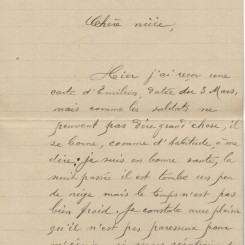 Chère nièce,
Hier j'ai reçu une
carte d'Emilien, datée du 3 Mars,
mais comme les soldats ne
peuvent pas dire grand chose, il
se borne, comme d'habitude à me
dire: je suis en bonne santé, la
nuit passée il est tombé un peu
de neige mais le temps n'est pas
bien froid. Je constate avec plaisir
qu'il n'est pas paresseux pour